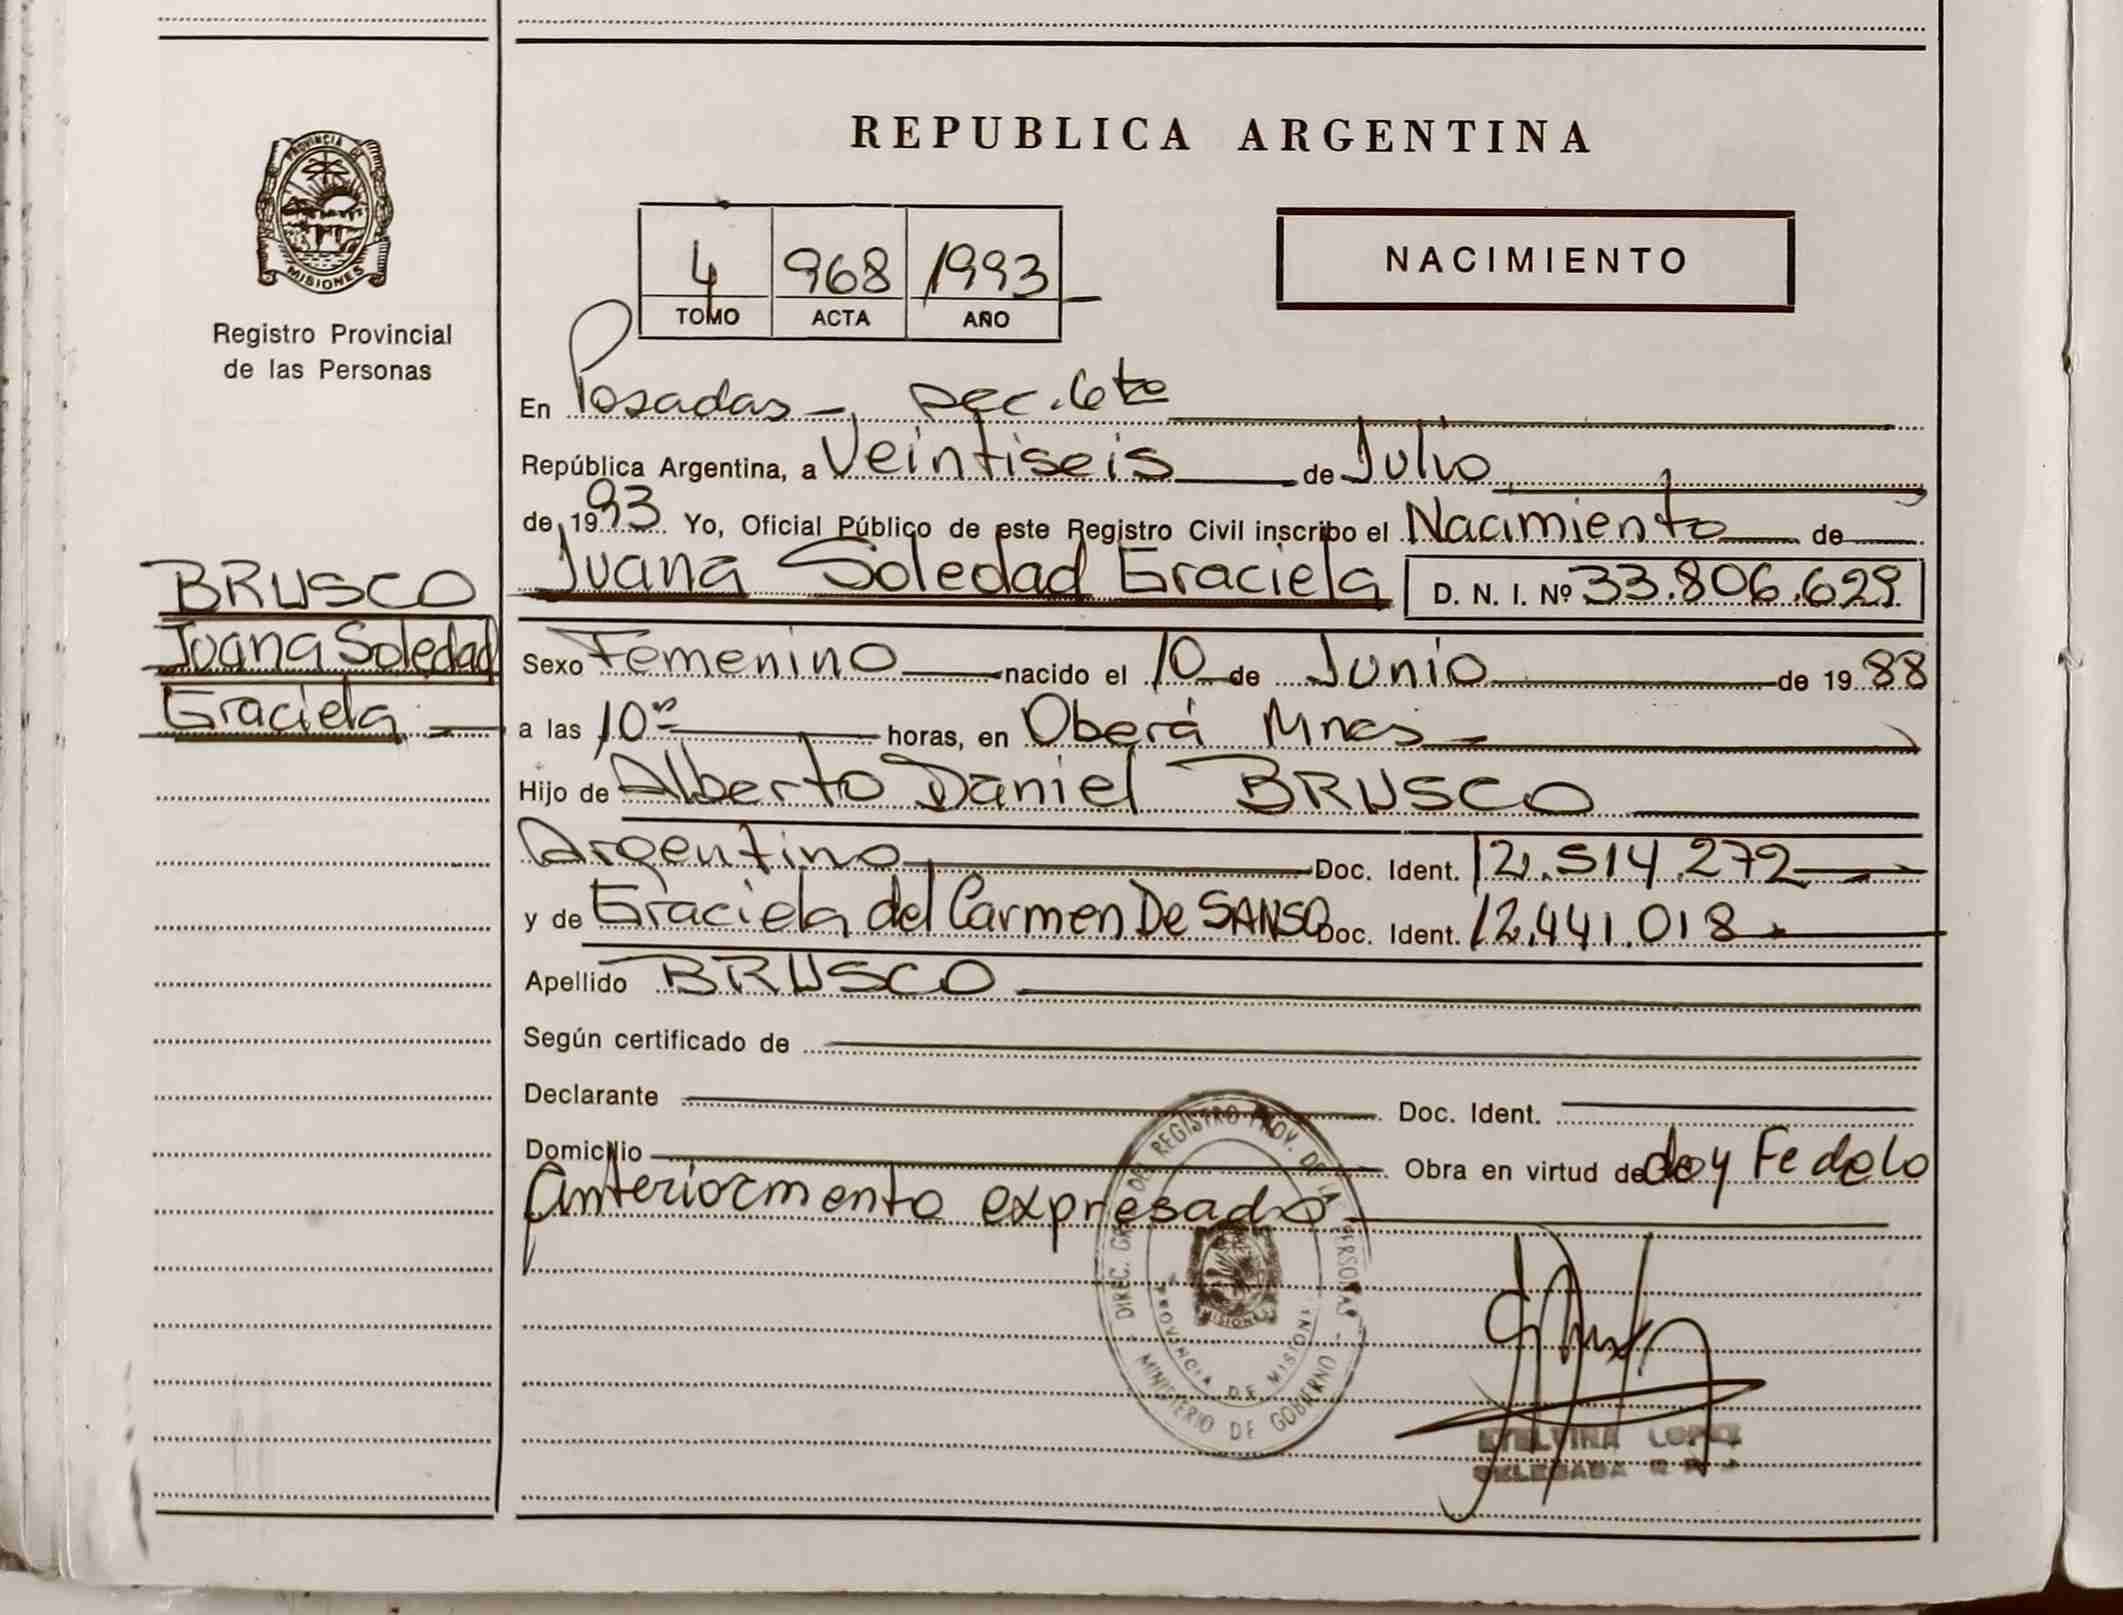 PROVINCIA DE
MISIONES
Registro Provincial
de las Personas
BRUSCO
Juana Soledad
Graciela
REPUBLICA ARGENTINA
4 968 1993
TOMO ACTA AÑO
NACIMIENTO
En Posadas - sec. 6ta
República Argentina, a Veintiseis de Julio
de 1993 Yo, Oficial Público de este Registro Civil inscribo el Nacimiento de
Juana Soledad Graciela D. N. I. Nº 33.806.629
Sexo Femenino nacido el 10 de Junio de 1988
a las 10 horas, en Oberá Mnes
Hijo de Alberto Daniel BRUSCO
Argentino Doc. Ident. 12.514.272
y de Graciela del Carmen De SANSO Doc. Ident. 12.441.018
Apellido BRUSCO
Según certificado de
Declarante Doc. Ident.
Domicilio Obra en virtud de doy Fe de lo
anteriormente expresado
DIREC. GRAL. DEL REGISTRO PROV. DE LA PERSONAS
PROVINCIA DE MISIONES
MINISTERIO DE GOBERNO
MISIONES
ETELVINA LOPEZ
DELEGADA